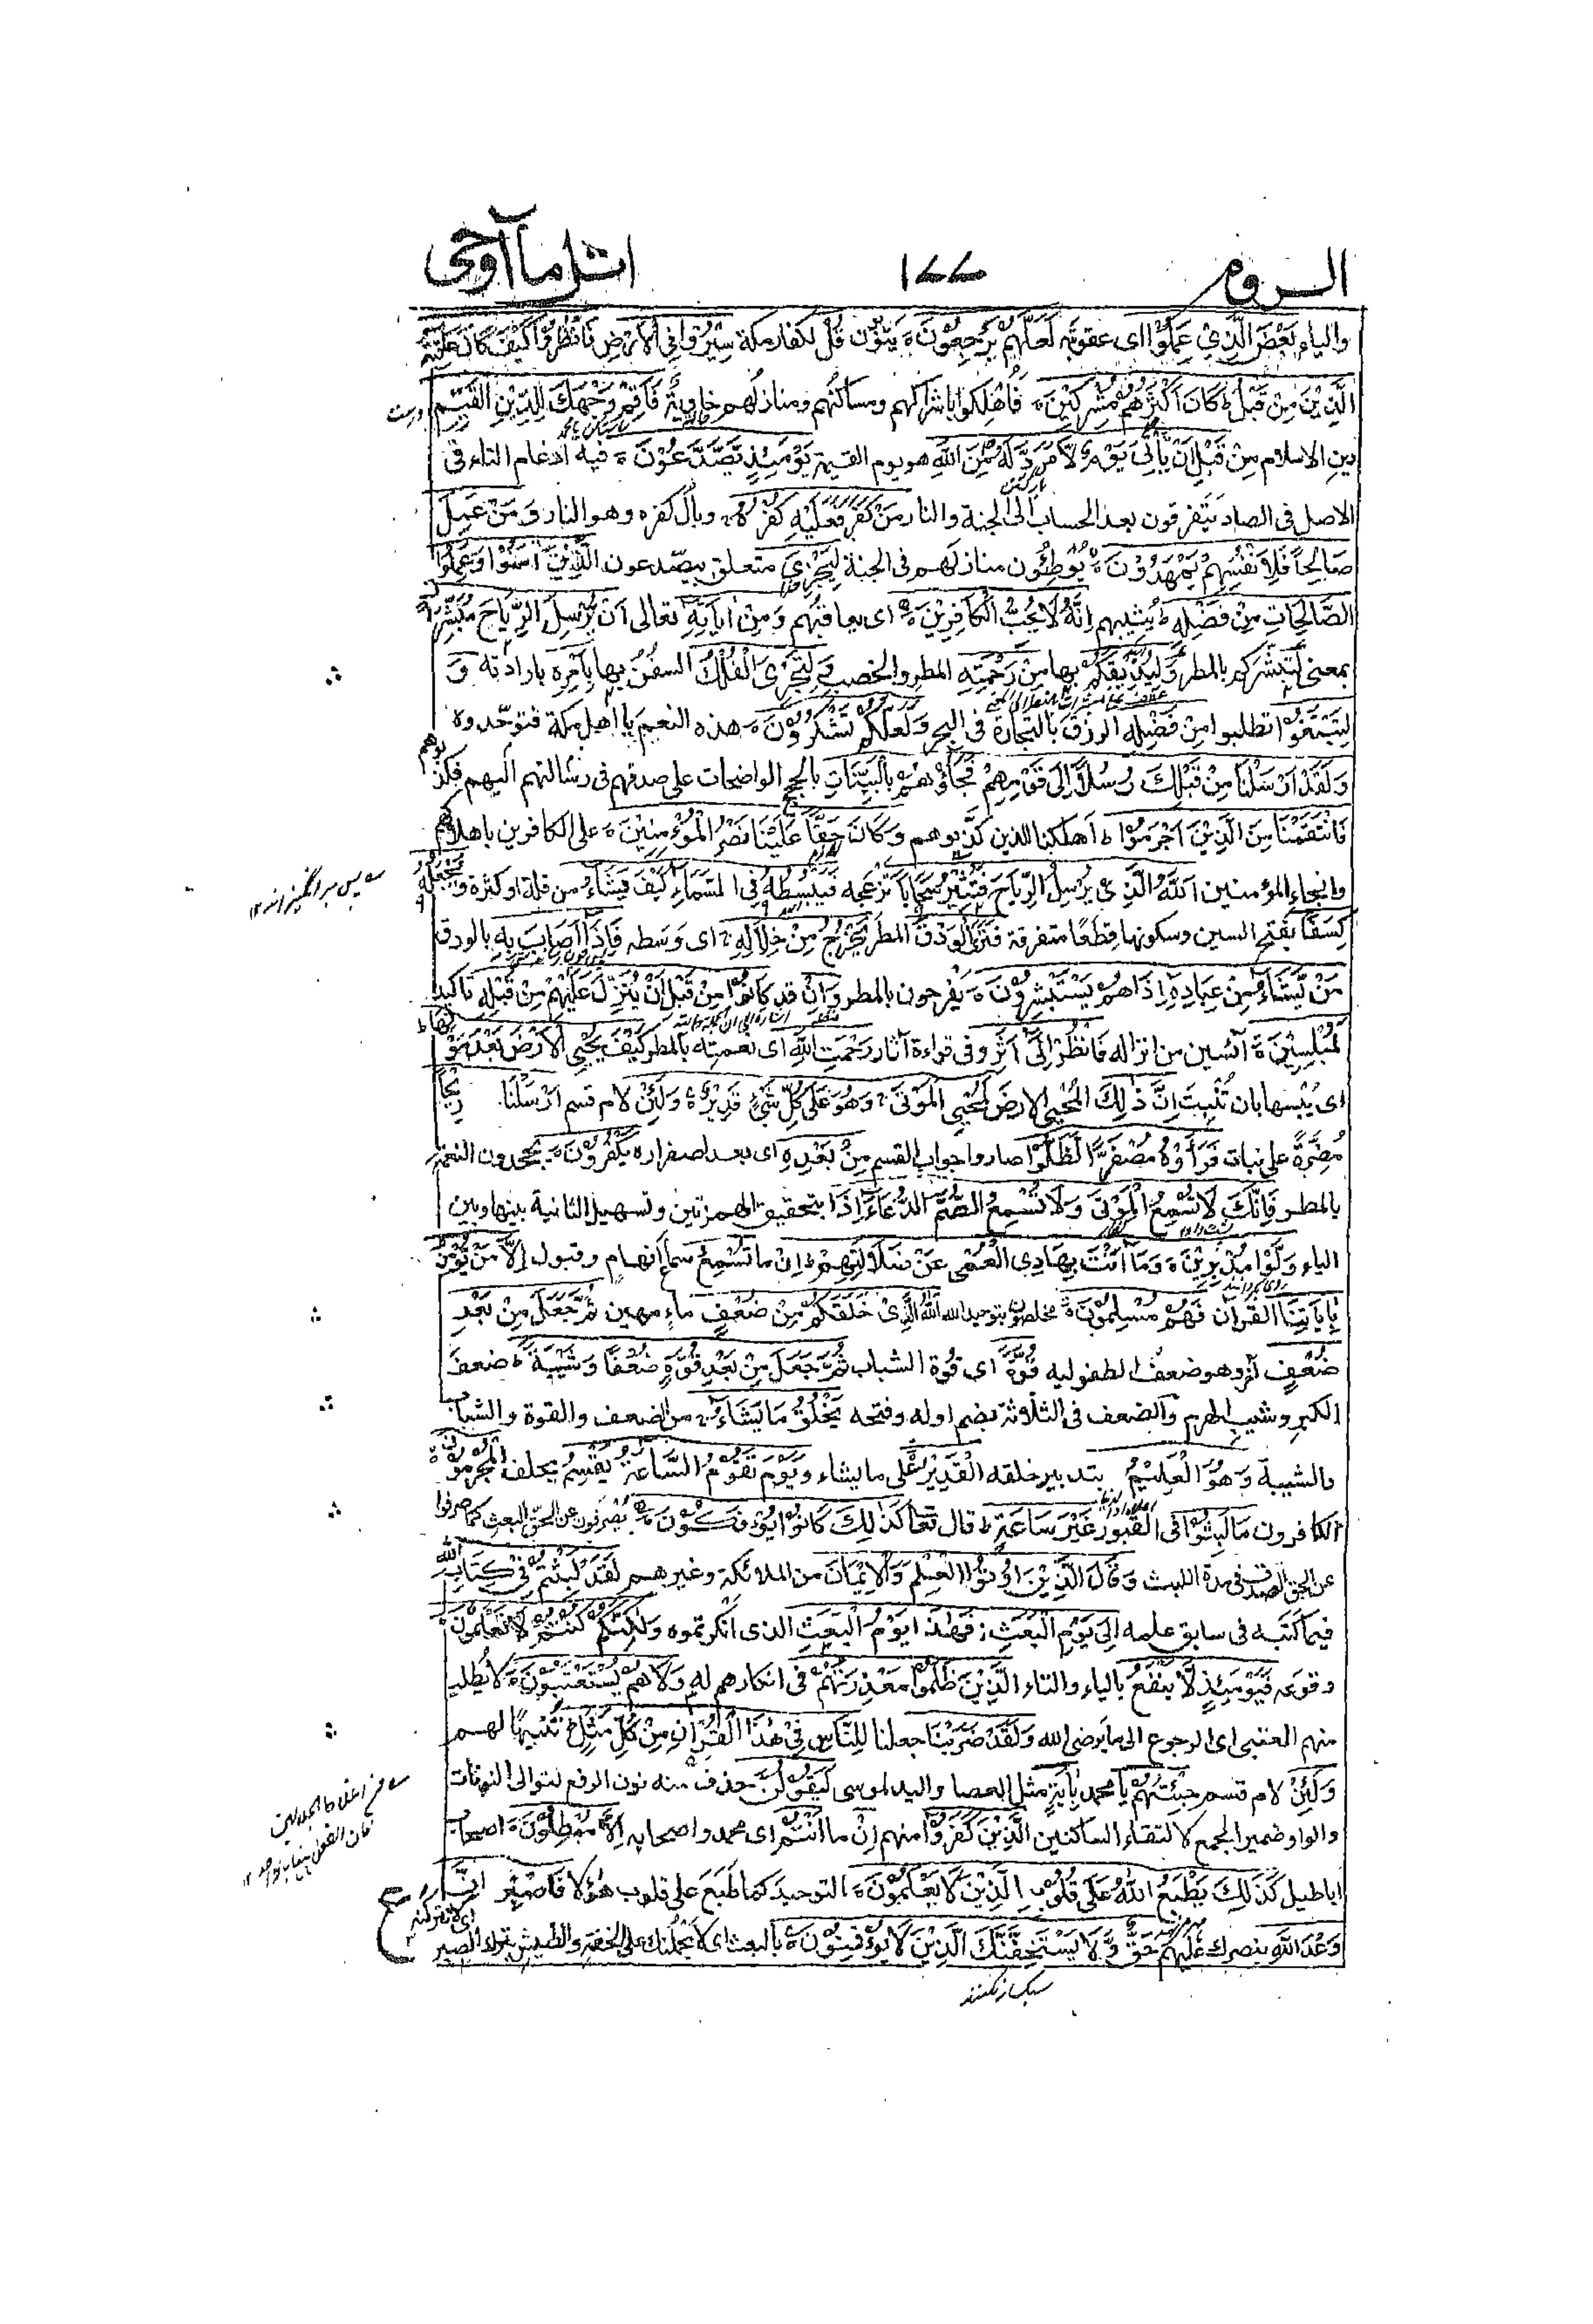 الروم ١٧٧ اتل ما اوحی
والیاء بَعْضَ الَّذِيْ عَمِلُوْا ای عقوبته لَعَلَّهُمْ يَرْجِعُوْنَ ه یتوبون قُلْ لکفار مکة سِيْرُوْا فِي الْاَرْضِ فَانْظُرُوْا كَيْفَ كَانَ عَاقِبَةُ
الَّذِيْنَ مِنْ قَبْلُ ط كَانَ اَكْثَرُهُمْ مُّشْرِكِيْنَ ه فَاُهْلِکوا باشراکهم ومساکنُهم ومنازلُهم خاویةً فَاَقِمْ وَجْهَكَ لِلدِّيْنِ الْقَيِّمِ
دین الاسلام مِنْ قَبْلِ اَنْ يَّاْتِيَ يَوْمٌ لَّا مَرَدَّ لَهٗ مِنَ اللّٰهِ هو یوم القیمة يَوْمَئِذٍ يَّصَّدَّعُوْنَ ه فیه ادغام التاء فی
الاصل فی الصاد یتفرقون بعد الحساب الی الجنة والنار مَنْ كَفَرَ فَعَلَيْهِ كُفْرُهٗ ج وبال کفره وهو النار وَمَنْ عَمِلَ
صَالِحًا فَلِاَنْفُسِهِمْ يَمْهَدُوْنَ ه یُوطِئون منازلهم فی الجنة لِيَجْزِيَ متعلق بیصّدعون الَّذِيْنَ اٰمَنُوْا وَعَمِلُوا
الصَّالِحَاتِ مِنْ فَضْلِهٖ ط یُثیبهم اِنَّهٗ لَا يُحِبُّ الْكَافِرِيْنَ ه ای یعاقبُهم وَمِنْ اٰيَاتِهٖ تعالی اَنْ يُّرْسِلَ الرِّيَاحَ مُبَشِّرَاتٍ
بمعنی لتبشرکم بالمطر وَّلِيُذِيْقَكُمْ بها مِنْ رَّحْمَتِهٖ المطر والخصب وَلِتَجْرِيَ الْفُلْكُ السفن بها بِاَمْرِهٖ بارادته وَ
لِتَبْتَغُوْا تطلبوا مِنْ فَضْلِهٖ الرزق بالتجارة فی البحر وَلَعَلَّكُمْ تَشْكُرُوْنَ ه هذه النعم یا اهل مکة فتوحّدوه
وَلَقَدْ اَرْسَلْنَا مِنْ قَبْلِكَ رُسُلًا اِلٰى قَوْمِهِمْ فَجَاؤُوْهُمْ بِالْبَيِّنَاتِ بالحجج الواضحات علی صدقهم فی رسالتهم الیهم فکذبوهم
فَانْتَقَمْنَا مِنَ الَّذِيْنَ اَجْرَمُوْا ط اهلکنا الذین کذّبوهم وَكَانَ حَقًّا عَلَيْنَا نَصْرُ الْمُؤْمِنِيْنَ ه علی الکافرین باهلاکهم
وانجاء المؤمنین اَللّٰهُ الَّذِيْ يُرْسِلُ الرِّيَاحَ فَتُثِيْرُ سَحَابًا تزعجه فَيَبْسُطُهٗ فِي السَّمَاءِ كَيْفَ يَشَاءُ من قلة او کثرة وَيَجْعَلُهٗ
كِسَفًا بفتح السین وسکونها قِطَعًا متفرقة فَتَرَى الْوَدْقَ المطر يَخْرُجُ مِنْ خِلَالِهٖ ج ای وسطه فَاِذَا اَصَابَ بِهٖ بالودق
مَنْ يَّشَاءُ مِنْ عِبَادِهٖ اِذَا هُمْ يَسْتَبْشِرُوْنَ ه یفرحون بالمطر وَاِنْ قد كَانُوْا مِنْ قَبْلِ اَنْ يُّنَزَّلَ عَلَيْهِمْ مِنْ قَبْلِهٖ تاکید
لَمُبْلِسِيْنَ ه آئسین من انزاله فَانْظُرْ اِلٰى اَثَرِ وفی قراءة آثار رَحْمَتِ اللّٰهِ ای نعمته بالمطر كَيْفَ يُحْيِي الْاَرْضَ بَعْدَ مَوْتِهَا ط
ای یُبْسها بان تُنْبِت اِنَّ ذٰلِكَ المُحْیی الارض لَمُحْيِي الْمَوْتٰى ج وَهُوَ عَلٰى كُلِّ شَيْءٍ قَدِيْرٌ ه وَلَئِنْ لام قسم اَرْسَلْنَا رِيْحًا
مُضِرَّةً علی نبات فَرَاَوْهُ مُصْفَرًّا لَّظَلُّوْا صاروا جواب القسم مِنْ بَعْدِهٖ ای بعد اصفراره يَكْفُرُوْنَ ه یجحدون النعمة
بالمطر فَاِنَّكَ لَا تُسْمِعُ الْمَوْتٰى وَلَا تُسْمِعُ الصُّمَّ الدُّعَاءَ اِذَا بتحقیق الهمزتین وتسهیل الثانیة بینها وبین
الیاء وَلَّوْا مُدْبِرِيْنَ ه وَمَا اَنْتَ بِهَادِي الْعُمْيِ عَنْ ضَلَالَتِهِمْ ط اِنْ ما تُسْمِعُ سماع افهام وقبول اِلَّا مَنْ يُّؤْمِنُ
بِاٰيَاتِنَا القران فَهُمْ مُّسْلِمُوْنَ ه مخلصون بتوحید الله اَللّٰهُ الَّذِيْ خَلَقَكُمْ مِّنْ ضُعْفٍ ماءٍ مهین ثُمَّ جَعَلَ مِنْ بَعْدِ
ضُعْفٍ آخر وهو ضعف الطفولیه قُوَّةً ای قوة الشباب ثُمَّ جَعَلَ مِنْ بَعْدِ قُوَّةٍ ضُعْفًا وَّشَيْبَةً ط ضعف
الکبر وشیب الهرم والضعف فی الثلاثة بضم اوله وفتحه يَخْلُقُ مَا يَشَاءُ ج من الضعف والقوة والشباب
والشیبة وَهُوَ الْعَلِيْمُ بتدبیر خلقه الْقَدِيْرُ علی ما یشاء وَيَوْمَ تَقُوْمُ السَّاعَةُ يُقْسِمُ یحلف الْمُجْرِمُوْنَ
الکافرون مَا لَبِثُوْا فی القبور غَيْرَ سَاعَةٍ ط قال تعا كَذٰلِكَ كَانُوْا يُؤْفَكُوْنَ ه یُصْرَفون عن الحق البعث کما صرفوا
عن الحق الصدق فی مدة اللبث وَقَالَ الَّذِيْنَ اُوْتُوا الْعِلْمَ وَالْاِيْمَانَ من الملائکة وغیرهم لَقَدْ لَبِثْتُمْ فِيْ كِتَابِ اللّٰهِ
فیما کتبه فی سابق علمه اِلٰى يَوْمِ الْبَعْثِ ز فَهٰذَا يَوْمُ الْبَعْثِ الذی انکرتموه وَلٰكِنَّكُمْ كُنْتُمْ لَا تَعْلَمُوْنَ
وقوعه فَيَوْمَئِذٍ لَّا يَنْفَعُ بالیاء والتاء الَّذِيْنَ ظَلَمُوْا مَعْذِرَتُهُمْ فی انکارهم له وَلَا هُمْ يُسْتَعْتَبُوْنَ ه لا یُطلب
منهم العتبی ای الرجوع الی ما یرضی الله وَلَقَدْ ضَرَبْنَا جعلنا لِلنَّاسِ فِيْ هٰذَا الْقُرْاٰنِ مِنْ كُلِّ مَثَلٍ ط تنبیها لهم
وَلَئِنْ لام قسم جِئْتَهُمْ یا محمد بِاٰيَةٍ مثل العصا والید لموسی لَّيَقُوْلَنَّ حذف منه نون الرفع لتوالی النونات
والواو ضمیر الجمع لالتقاء الساکنین الَّذِيْنَ كَفَرُوْا منهم اِنْ ما اَنْتُمْ ای محمد واصحابه اِلَّا مُبْطِلُوْنَ ه اصحاب
اباطیل كَذٰلِكَ يَطْبَعُ اللّٰهُ عَلٰى قُلُوْبِ الَّذِيْنَ لَا يَعْلَمُوْنَ ه التوحید کما طبع علی قلوب هؤلا فَاصْبِرْ اِنَّ
وَعْدَ اللّٰهِ بنصرك علیهم حَقٌّ وَّلَا يَسْتَخِفَّنَّكَ الَّذِيْنَ لَا يُوْقِنُوْنَ ه بالبعث ای لا یحملنك علی الخفة والطیش بترك الصبر
سبکسار نکنند